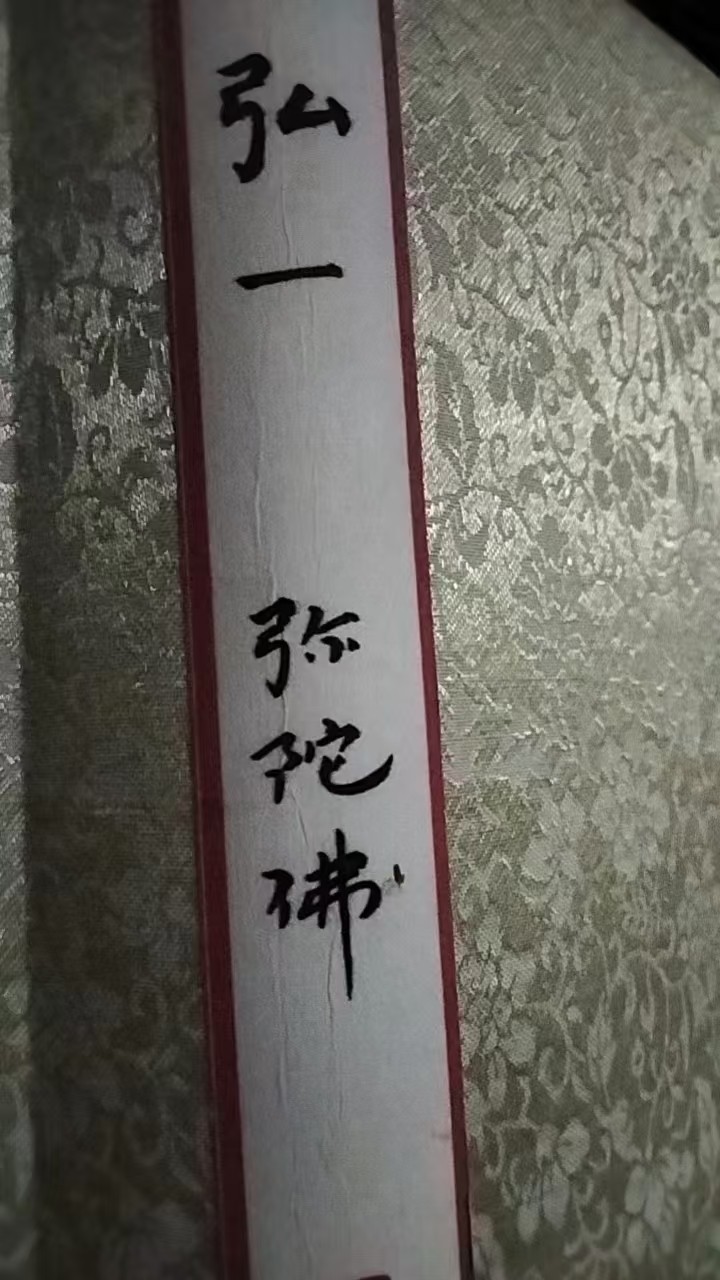 弘一 弥陀佛